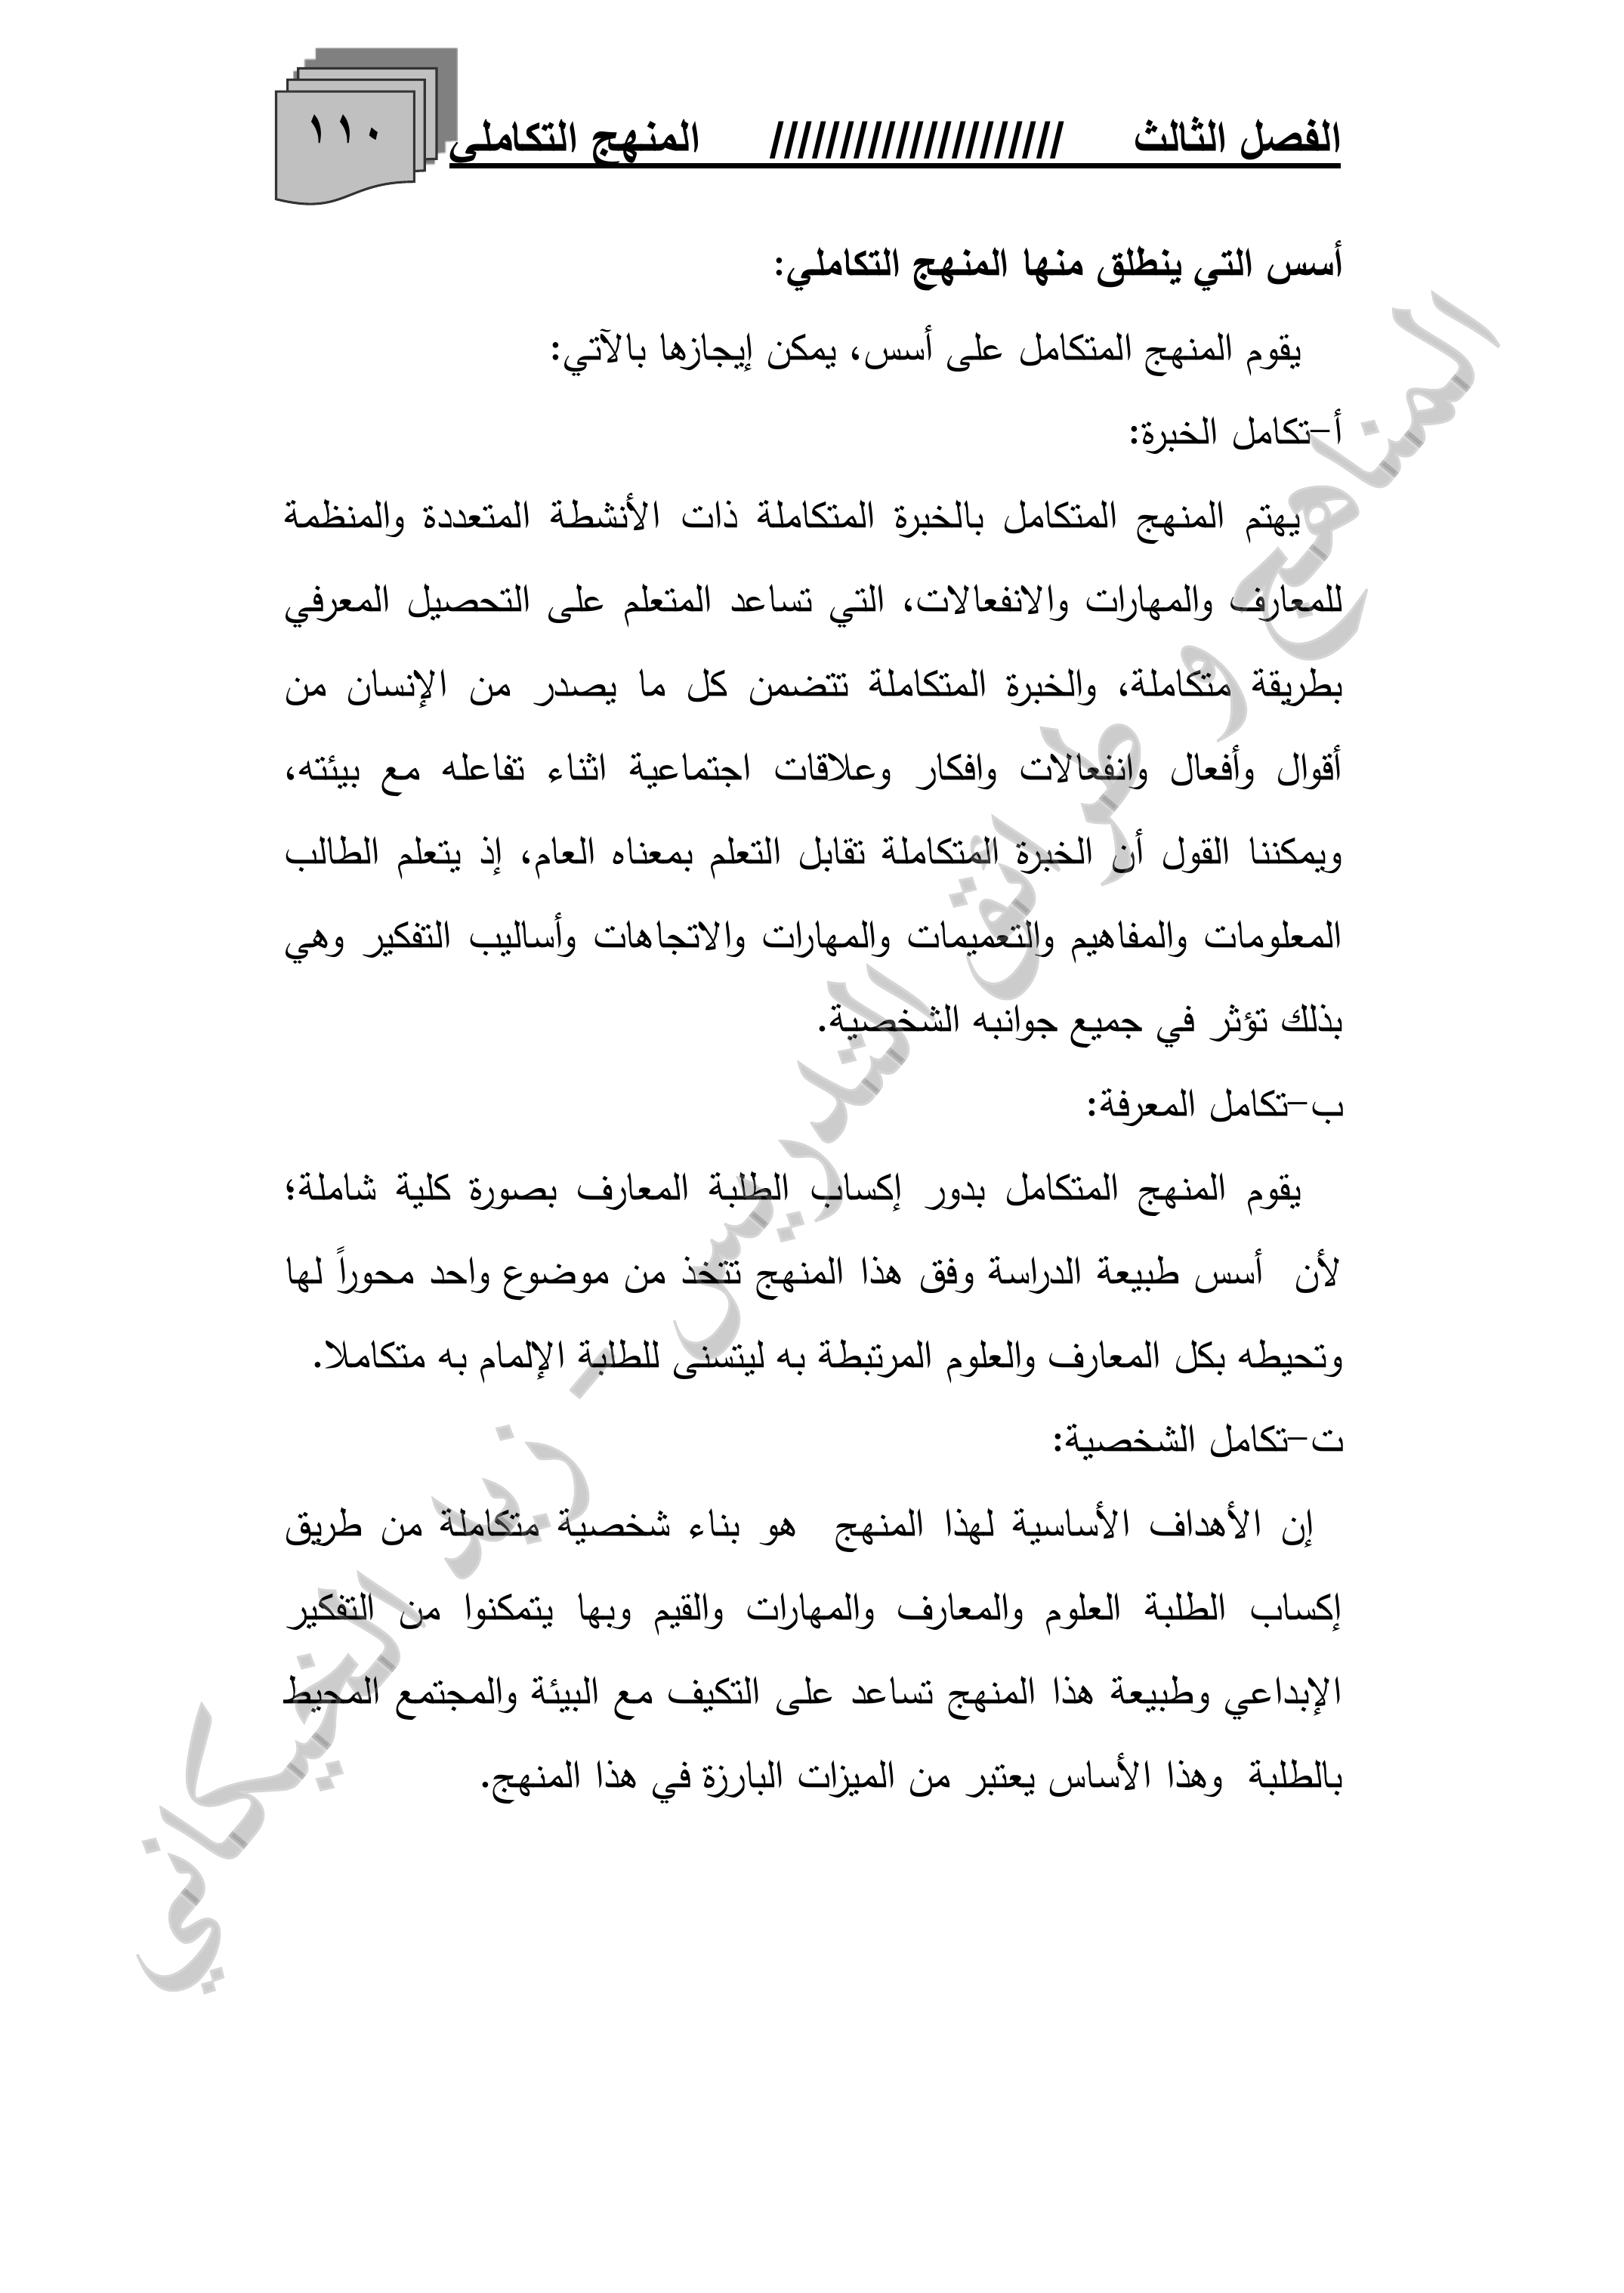 الفصل الثالث ///////////////////// المنهج التكاملي
١١٠
أسس التي ينطلق منها المنهج التكاملي:
يقوم المنهج المتكامل على أسس، يمكن إيجازها بالآتي:
أ-تكامل الخبرة:
يهتم المنهج المتكامل بالخبرة المتكاملة ذات الأنشطة المتعددة والمنظمة
للمعارف والمهارات والانفعالات، التي تساعد المتعلم على التحصيل المعرفي
بطريقة متكاملة، والخبرة المتكاملة تتضمن كل ما يصدر من الإنسان من
أقوال وأفعال وانفعالات وافكار وعلاقات اجتماعية اثناء تفاعله مع بيئته،
ويمكننا القول أن الخبرة المتكاملة تقابل التعلم بمعناه العام، إذ يتعلم الطالب
المعلومات والمفاهيم والتعميمات والمهارات والاتجاهات وأساليب التفكير وهي
بذلك تؤثر في جميع جوانبه الشخصية.
ب-تكامل المعرفة:
يقوم المنهج المتكامل بدور إكساب الطلبة المعارف بصورة كلية شاملة؛
لأن أسس طبيعة الدراسة وفق هذا المنهج تتخذ من موضوع واحد محوراً لها
وتحيطه بكل المعارف والعلوم المرتبطة به ليتسنى للطلبة الإلمام به متكاملا.
ت-تكامل الشخصية:
إن الأهداف الأساسية لهذا المنهج هو بناء شخصية متكاملة من طريق
إكساب الطلبة العلوم والمعارف والمهارات والقيم وبها يتمكنوا من التفكير
الإبداعي وطبيعة هذا المنهج تساعد على التكيف مع البيئة والمجتمع المحيط
بالطلبة وهذا الأساس يعتبر من الميزات البارزة في هذا المنهج.
المناهج و طرائق التدريس - زيد الخيكاني